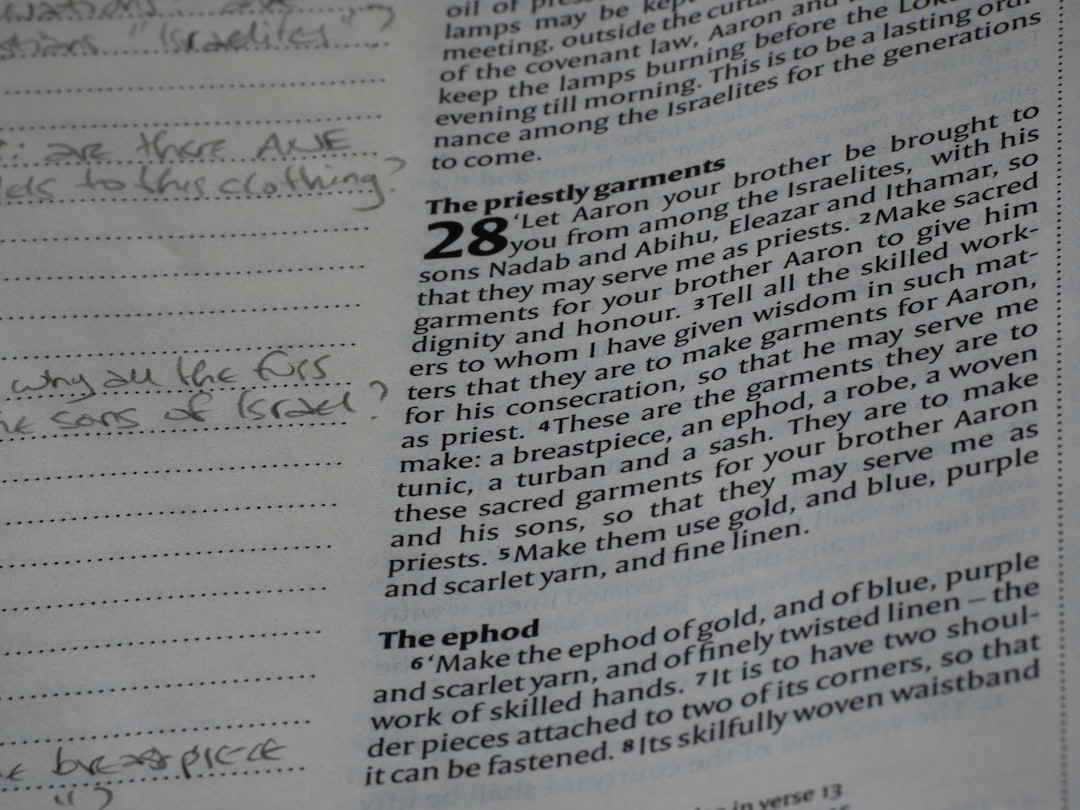 "Israelites"?
are there ANE
to this clothing?
why all the
sons of Israel?
breastpiece
oil of
lamps may be kept
meeting, outside the
of the covenant law, Aaron and
keep the lamps burning before the LORD
evening till morning. This is to be a lasting ordi-
nance among the Israelites for the generations
to come.
The priestly garments
28 ‘Let Aaron your brother be brought to
you from among the Israelites, with his
sons Nadab and Abihu, Eleazar and Ithamar, so
that they may serve me as priests. 2Make sacred
garments for your brother Aaron to give him
dignity and honour. 3Tell all the skilled work-
ers to whom I have given wisdom in such mat-
ters that they are to make garments for Aaron,
for his consecration, so that he may serve me
as priest. 4These are the garments they are to
make: a breastpiece, an ephod, a robe, a woven
tunic, a turban and a sash. They are to make
these sacred garments for your brother Aaron
and his sons, so that they may serve me as
priests. 5Make them use gold, and blue, purple
and scarlet yarn, and fine linen.
The ephod
6‘Make the ephod of gold, and of blue, purple
and scarlet yarn, and of finely twisted linen – the
work of skilled hands. 7It is to have two shoul-
der pieces attached to two of its corners, so that
it can be fastened. 8Its skilfully woven waistband
in verse 13